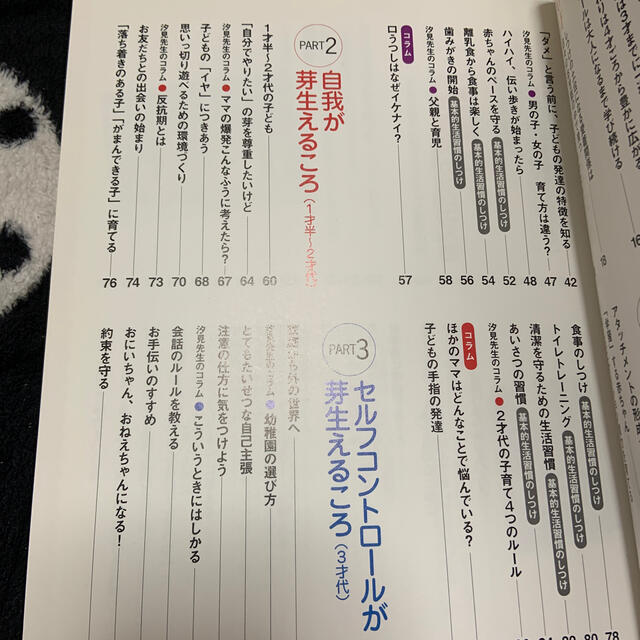 「ダメ」と言う前に、子どもの発達の特徴を知る 42
汐見先生のコラム●男の子・女の子 育て方は違う? 47
ハイハイ、伝い歩きが始まったら 48
赤ちゃんのペースを守る 基本的生活習慣のしつけ 52
離乳食から食事は楽しく 基本的生活習慣のしつけ 54
歯みがきの開始 基本的生活習慣のしつけ 56
汐見先生のコラム●父親と育児 58
コラム
口うつしはなぜイケナイ? 57
PART2
自我が
芽生えるころ(1才半〜2才代)
1才半〜2才代の子ども 60
「自分でやりたい」の芽を尊重したいけど 64
汐見先生のコラム●ママの爆発こんなふうに考えたら? 67
子どもの「イヤ」につきあう 68
思いっ切り遊べるための環境づくり 70
反抗期とは 73
お友だちとの出会いの始まり 74
「落ち着きのある子」「がまんできる子」に育てる 76
食事のしつけ 基本的生活習慣のしつけ 78
トイレトレーニング 基本的生活習慣のしつけ 80
清潔を守るための生活習慣 基本的生活習慣のしつけ
あいさつの習慣 基本的生活習慣のしつけ
汐見先生のコラム●2才代の子育て4つのルール
コラム
ほかのママはどんなことで悩んでいる?
子どもの手指の発達
PART3
セルフコントロールが
芽生えるころ(3才代)
外の世界へ
汐見先生のコラム●幼稚園の選び方
とてもたいせつな自己主張
注意の仕方に気をつけよう
汐見先生のコラム●こういうときにはしかる
会話のルールを教える
お手伝いのすすめ
おにいちゃん、おねえちゃんになる!
約束を守る